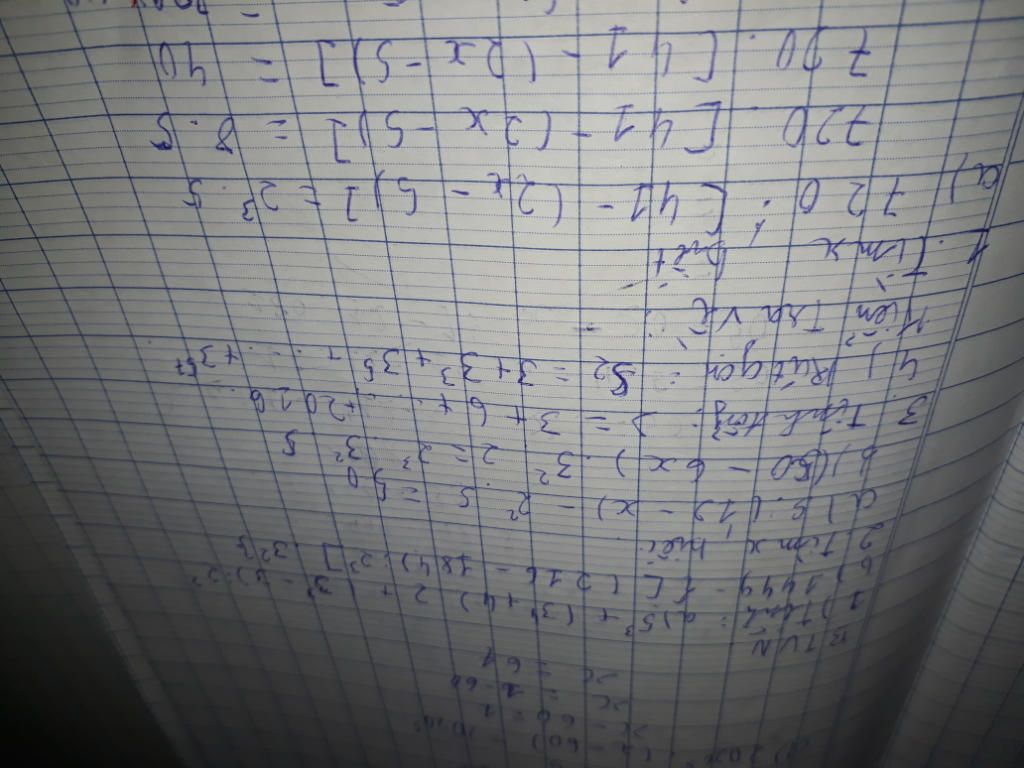 x - 60 = 1
x = 1 - 60
x = 61
BTVN
1) Tính: a) 5³ + (3⁴ + 4) 2 + (
b) 1449 - { [ (216 - 184) : 2³ ] . 3²
2. Tìm x biết:
a) 5. (12 - x) - 2². 5 = 5
b) (50 - 6x) . 3² = 2³. 3². 5
3. Tính tổng: S = 3 + 6 + ... + 2016
4) Rút gọn: S2 = 3 + 3³ + 3⁵ + ... + 3⁵⁷
Kiểm Tra Vở
1. Tìm x biết
a) 720 : [41 - (2x - 5)] = 2³. 5
720 : [41 - (2x - 5)] = 8. 5
720 : [41 - (2x - 5)] = 40